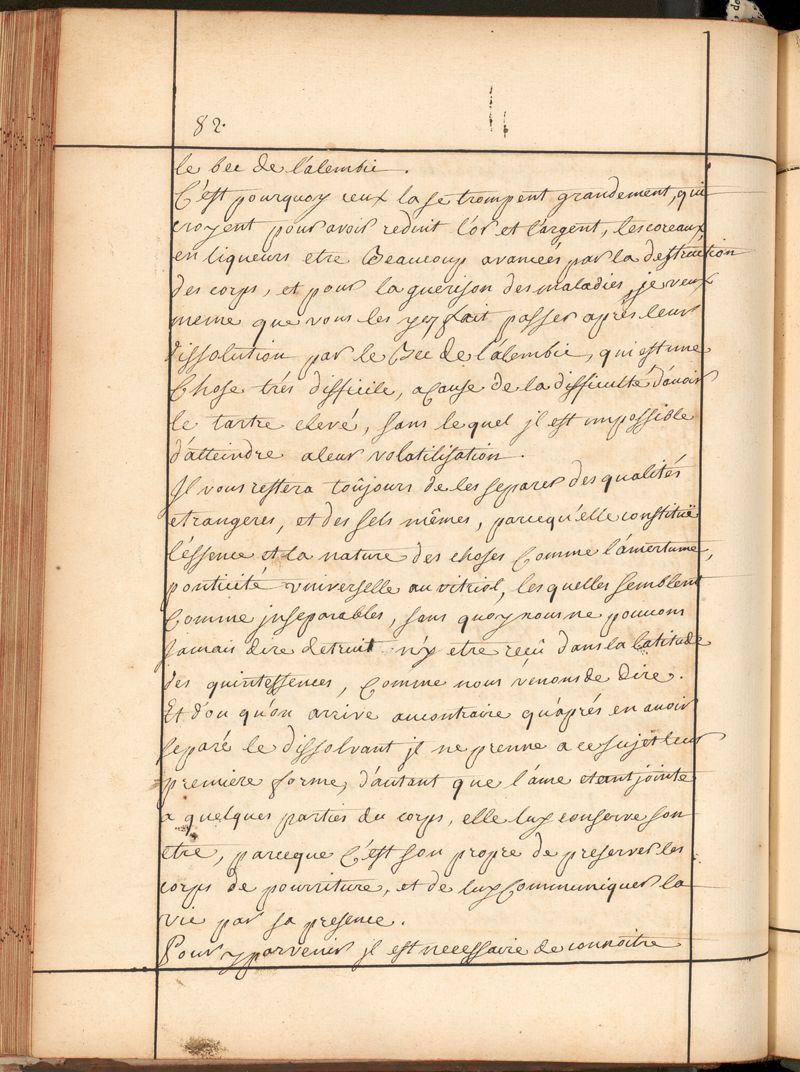 82.
le bec de l'alembic.
C'est pourquoy ceux la se trompent grandement, qui
croyent pour avoir reduit l'or et l'argent, les coreaux
en liqueurs etre Beaucoup avanceés par la destruction
des corps, et pour la guerison des maladies, je veux
meme que vous les yez fait passer aprés leur
dissolution par le Bec de l'alembic, qui est une
Chose trés difficile, a cause de la difficulté d'avoir
le tartre elevé, sans lequel jl est impossible
d'atteindre a leur volatilisation.
Jl vous restera toûjours de les separer des qualités
etrangeres, et des sels mêmes, parcequ'elle constituë
l'éssence et la nature des choses Comme l'ámertume,
ponticité vniverselle au vitriol, lesquelles semblent
Comme jnseparables, sans quoy nous ne pouvons
Jamais dire detruit n'y etre reçû dans la latitude
des quintessences, Comme nous vénons de Dire.
Et d'ou qu'on arrive au contraire qu'aprés en avoir
separé le dissolvant jl ne prenne a ce sujet leur
premiere forme, d'autant que l'ame etant jointe
a quelques parties du corps, elle luy conserve son
etre, parceque C'est son propre de preserver les
corps de pourriture, et de luy Communiquer la
vie par sa presence.
Pour y parvenir jl est necessaire de connoitre